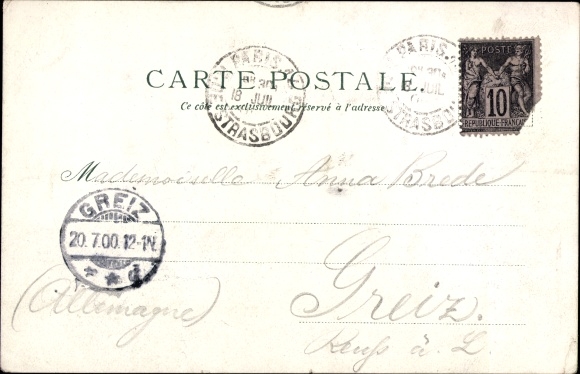 PARIS
18 JUIL
STRASBOURG
PARIS
JUIL
STRASBOU
POSTE
10
REPUBLIQUE FRANCAISE
CARTE POSTALE.
Ce côté est exclusivement réservé à l'adresse
Mademoiselle Anna Brede
GREIZ
20.7.00.12-1N.
* * d
(Allemagne)
Greiz.
Reuß ä. L.